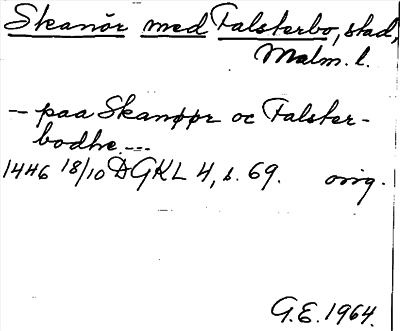 Skanör med Falsterbo, stad,
Malm. l.
– paa Skanøpr oc Falster-
bodhe ---
1446 18/10 DGKL 4, s. 69. orig.
G.E. 1964.